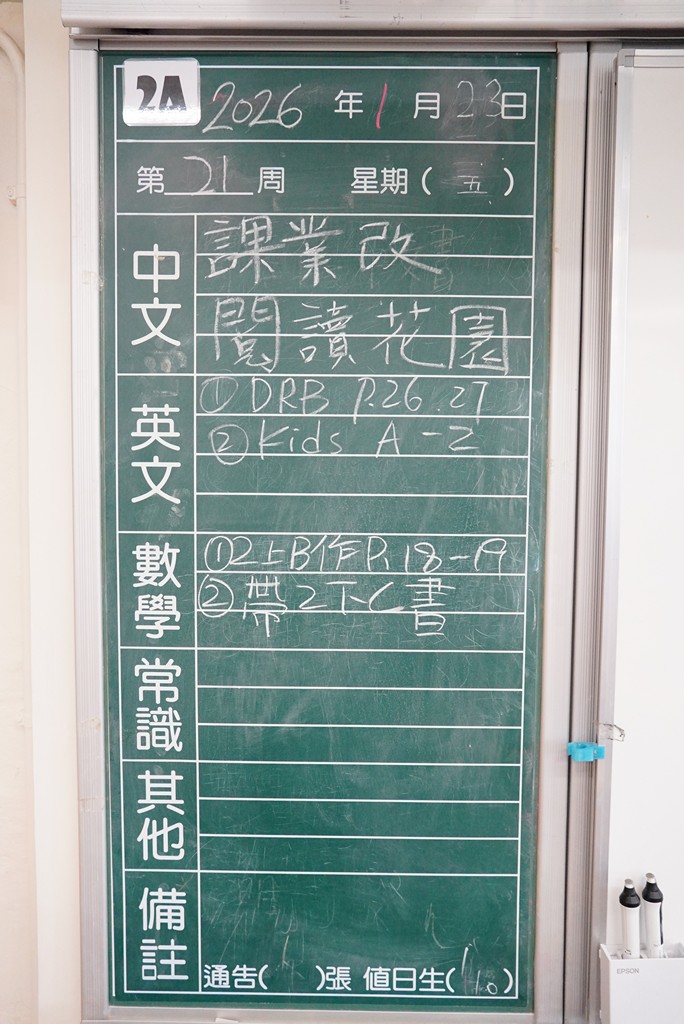 2A 2026年1月23日
第21周 星期(五)
中文
課業改
閱讀花園
英文
① DRB P.26.27
② Kids A-Z
數學
①2上B作P.18-19
②帶2下C書
常識
其他
備註
通告( )張 值日生( )
EPSON